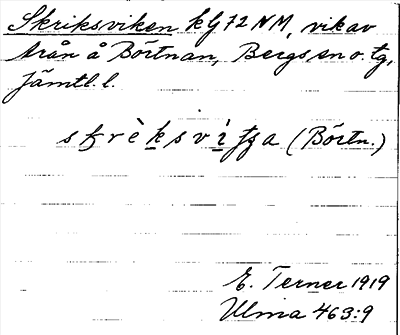 Skriksviken kg 72 NM, vik av
Mrån å Börtnan, Bergs sn o. tg,
Jämtl. l.
skrèksvi̇̀ka (Börtn.)
E. Terner 1919
Ulma 463:9